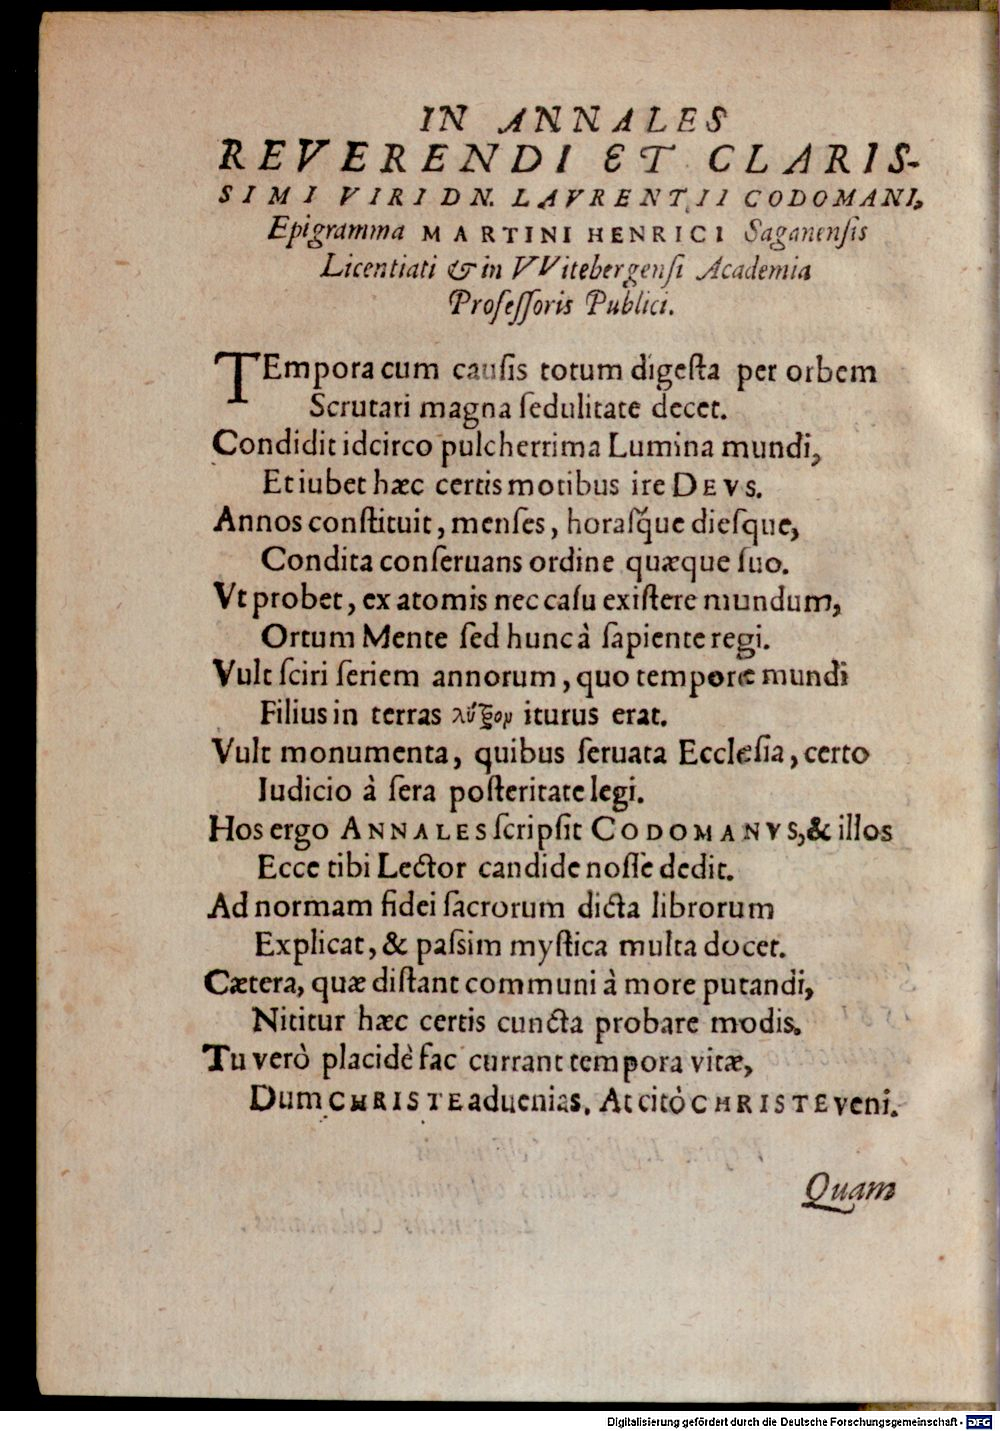 IN ANNALES
REVERENDI ET CLARIS-
SIMI VIRI DN. LAVRENTII CODOMANI,
Epigramma MARTINI HENRICI Saganenſis
Licentiati & in VVitebergenſi Academia
Profeſſoris Publici.
TEmpora cum cauſis totum digeſta per orbem
Scrutari magna ſedulitate decet.
Condidit idcirco pulcherrima Lumina mundi,
Et iubet hæc certis motibus ire DEVS.
Annos conſtituit, menſes, horaſq́ue dieſque,
Condita conſeruans ordine quæque ſuo.
Vt probet, ex atomis nec caſu exiſtere mundum,
Ortum Mente ſed hunc à ſapiente regi.
Vult ſciri ſeriem annorum, quo tempore mundi
Filius in terras λύξον iturus erat.
Vult monumenta, quibus ſeruata Eccleſia, certo
Iudicio à ſera poſteritate legi.
Hos ergo ANNALES ſcripſit CODOMANVS, & illos
Ecce tibi Lector candide noſſe dedit.
Ad normam fidei ſacrorum dicta librorum
Explicat, & paſsim myſtica multa docet.
Cætera, quæ diſtant communi à more putandi,
Nititur hæc certis cuncta probare modis.
Tu verò placidè fac currant tempora vitæ,
Dum CHRISTE aduenias. At citò CHRISTE veni.
Quam
Digitalisierung gefördert durch die Deutsche Forschungsgemeinschaft - DFG